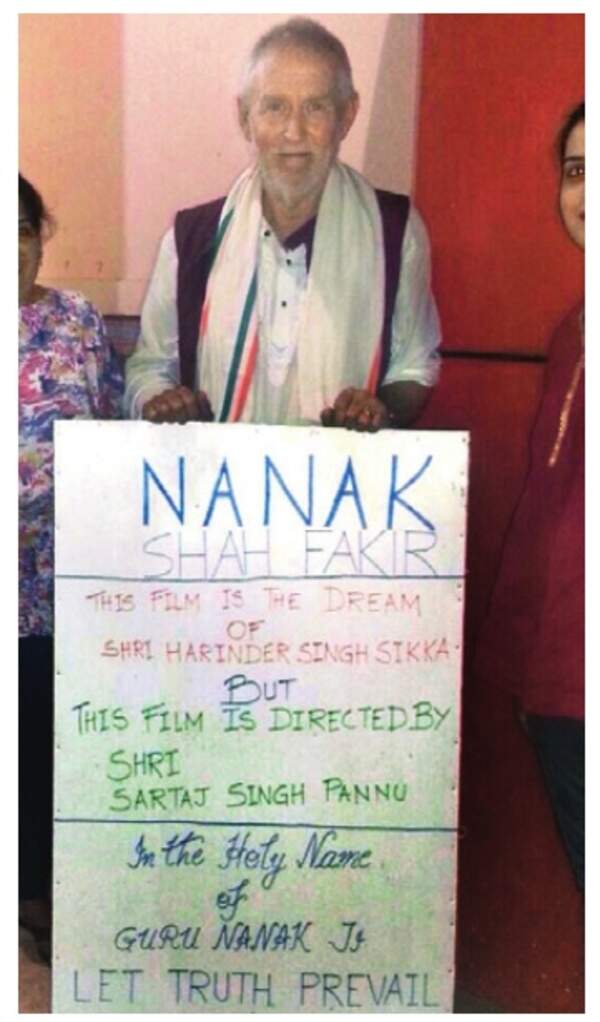 NANAK
SHAH FAKIR
THIS FILM IS THE DREAM
OF
SHRI HARINDER SINGH SIKKA
BUT
THIS FILM IS DIRECTED BY
SHRI
SARTAJ SINGH PANNU
In the Holy Name
of
GURU NANAK JI
LET TRUTH PREVAIL